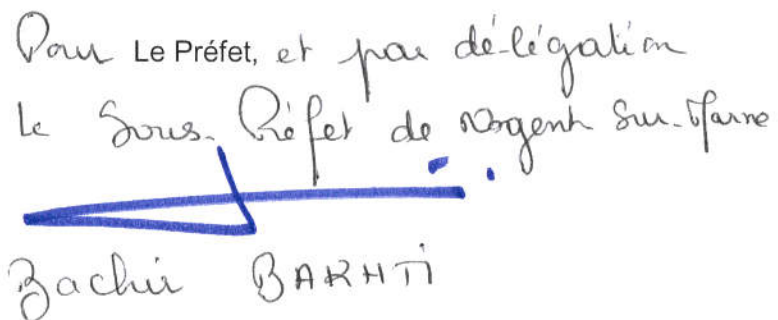 Pour Le Préfet, et par délégation
le Sous-Préfet de Nogent sur-Marne
Bachir BAKHTI